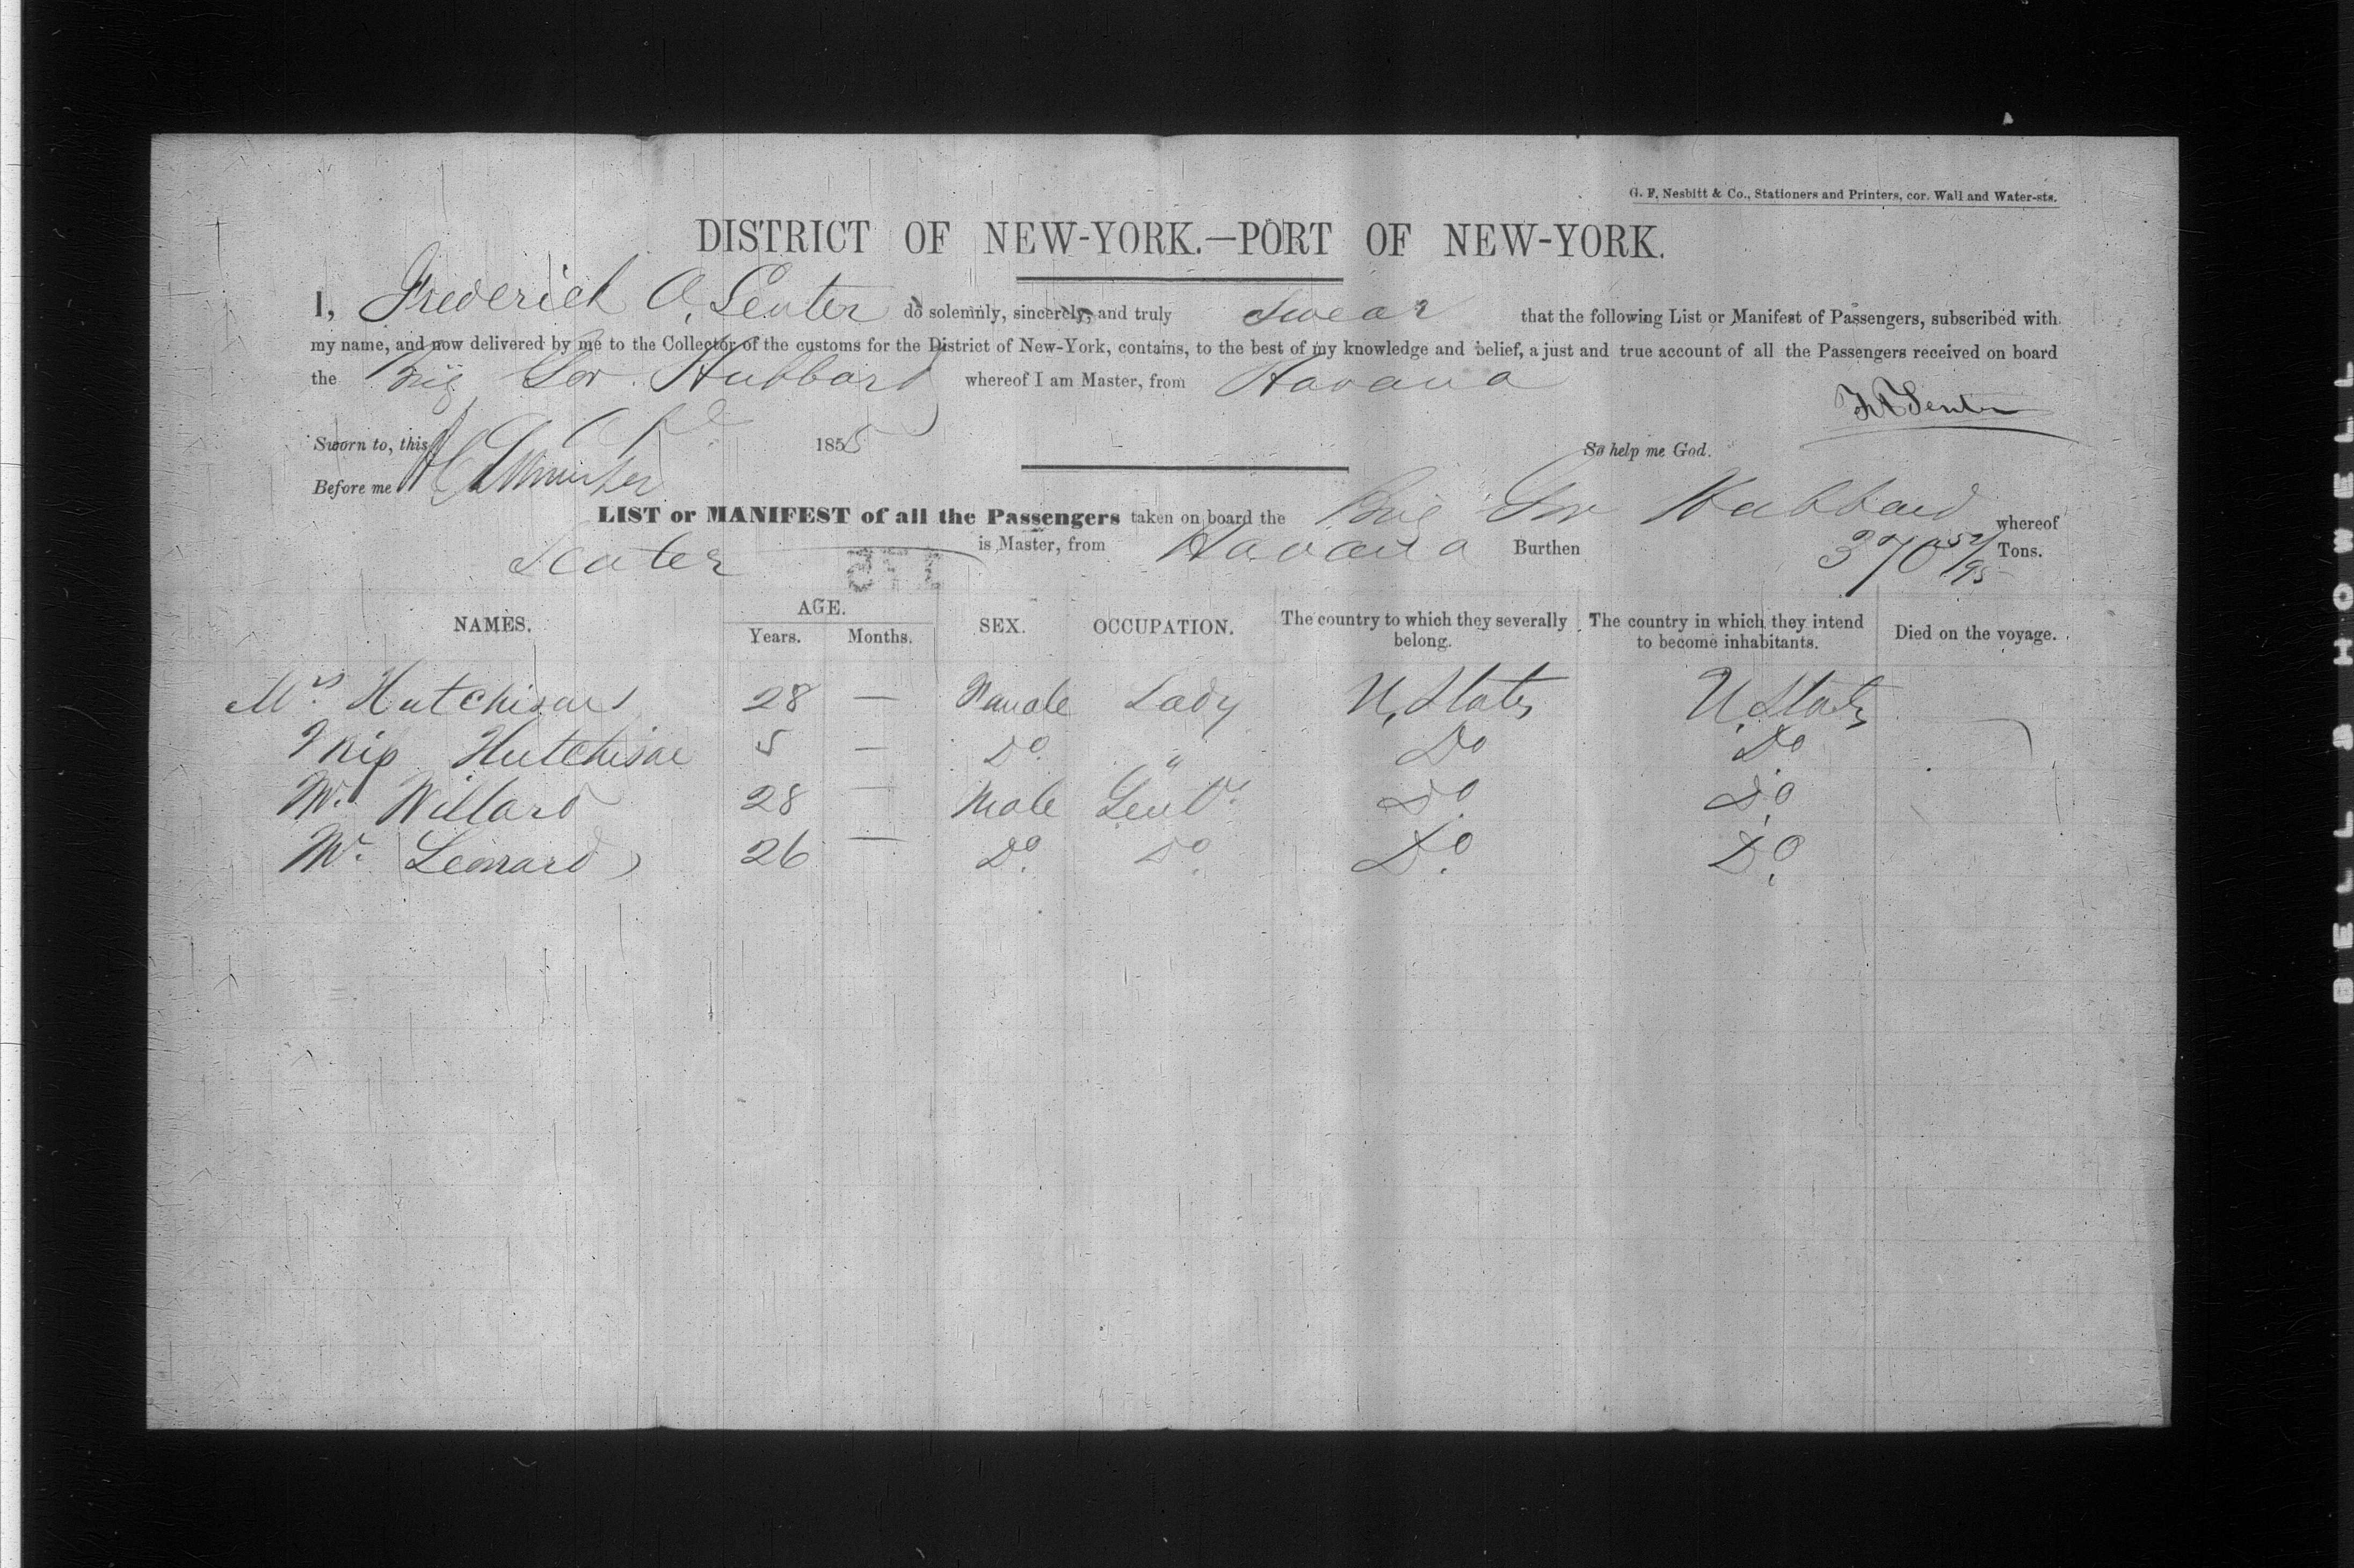 G. F. Nesbitt & Co., Stationers and Printers, cor. Wall and Water-sts.
DISTRICT OF NEW-YORK.—PORT OF NEW-YORK.
I, Frederick A. Senter do solemnly, sincerely, and truly Swear that the following List or Manifest of Passengers, subscribed with
my name, and now delivered by me to the Collector of the customs for the District of New-York, contains, to the best of my knowledge and belief, a just and true account of all the Passengers received on board
the Brig Gov. Hubbard whereof I am Master, from Havana
F A Senter
Sworn to, this 1855 So help me God.
Before me
LIST or MANIFEST of all the Passengers taken on board the Brig Gov Hubbard whereof
Senter is Master, from Havana Burthen 370 52/95 Tons.
NAMES. AGE. SEX. OCCUPATION. The country to which they severally belong. The country in which they intend to become inhabitants. Died on the voyage.
Years. Months.
Mrs Hutchison 28 — Female Lady U, States U, States
Miss Hutchison 5 — Do " Do Do
Mr. Willard 28 — Male Gent Do Do
Mr. Leonard 26 — Do. Do. Do. Do.
BELL & HOWELL